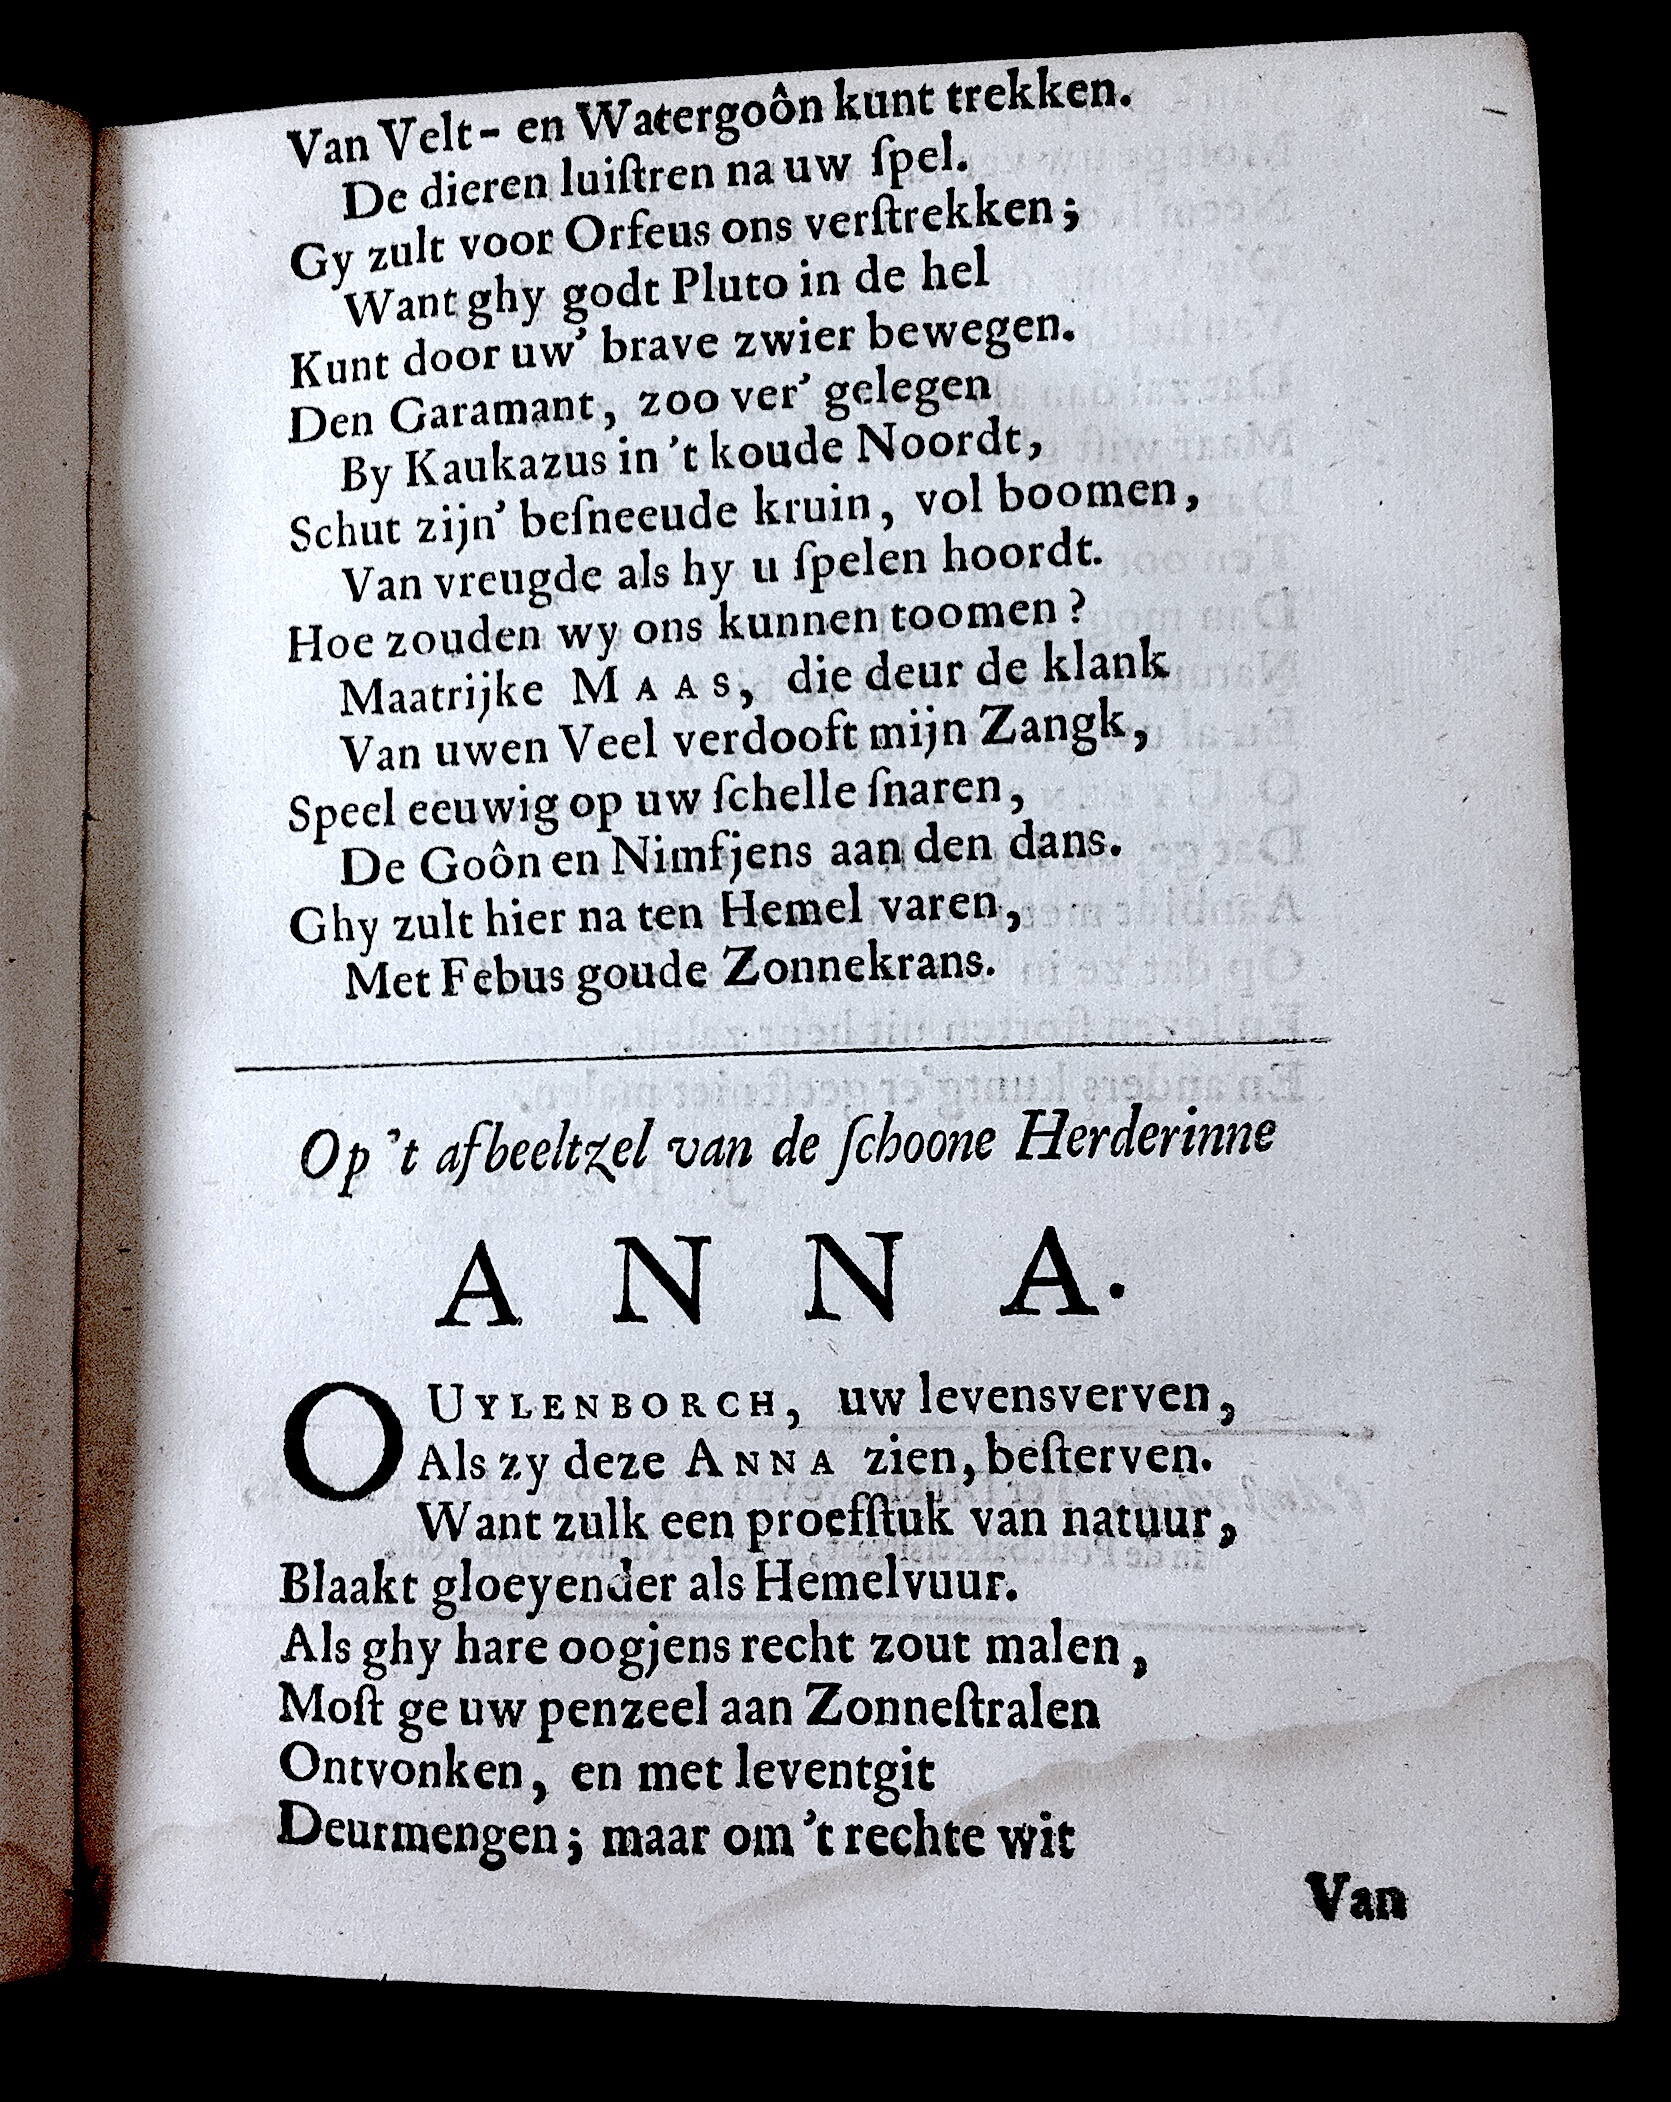 Van Velt- en Watergoôn kunt trekken.
De dieren luiſtren na uw ſpel.
Gy zult voor Orfeus ons verſtrekken;
Want ghy godt Pluto in de hel
Kunt door uw’ brave zwier bewegen.
Den Garamant, zoo ver’ gelegen
By Kaukazus in ’t koude Noordt,
Schut zijn’ beſneeude kruin, vol boomen,
Van vreugde als hy u ſpelen hoordt.
Hoe zouden wy ons kunnen toomen?
Maatrijke MAAS, die deur de klank
Van uwen Veel verdooft mijn Zangk,
Speel eeuwig op uw ſchelle ſnaren,
De Goôn en Nimfjens aan den dans.
Ghy zult hier na ten Hemel varen,
Met Febus goude Zonnekrans.
Op ’t afbeeltzel van de ſchoone Herderinne
ANNA.
O UYLENBORCH, uw levensverven,
Als zy deze ANNA zien, beſterven.
Want zulk een proefſtuk van natuur,
Blaakt gloeyender als Hemelvuur.
Als ghy hare oogjens recht zout malen,
Moſt ge uw penzeel aan Zonneſtralen
Ontvonken, en met leventgit
Deurmengen; maar om ’t rechte wit
Van